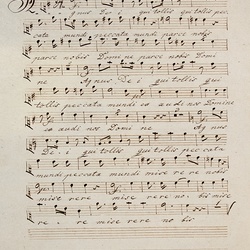 Agnus Dei qui tollis pec
cata mundi peccata mundi parce nobis
parce nobis Domine parce nobis Domi
ne Agnus Dei qui tollis qui
tollis peccata mundi exaudi nos Domine
exaudi nos Domine Agnus
Dei qui tollis qui tollis
mundi peccata mundi miserere nobis
miserere miserere nobis mise
re re miserere nobis